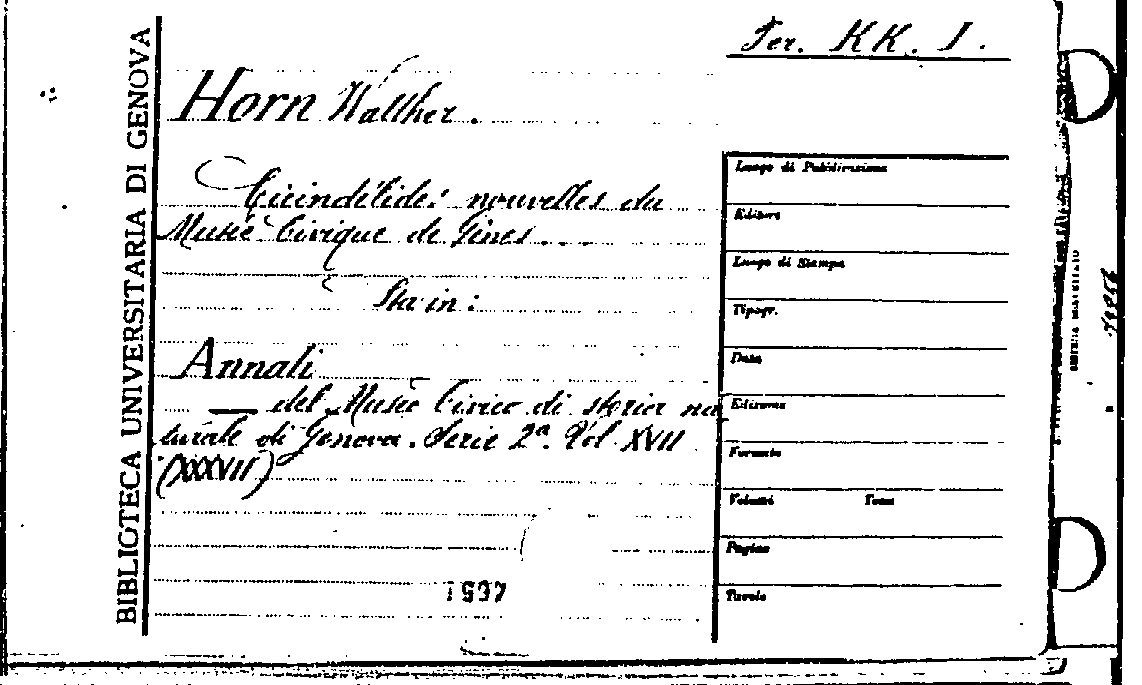 BIBLIOTECA UNIVERSITARIA DI GENOVA
Fer. KK. I.
Horn Walther.
Cicindélides nouvelles du
Musée Civique de Gênes.
Sta in:
Annali
— del Museo Civico di storia na
turale di Genova. Serie 2ª. Vol XVII
(XXXVII)
1897
Luogo di Pubblicazione
Editore
Luogo di Stampa
Tipogr.
Data
Edizione
Formato
Volumi Tomo
Pagine
Tavole